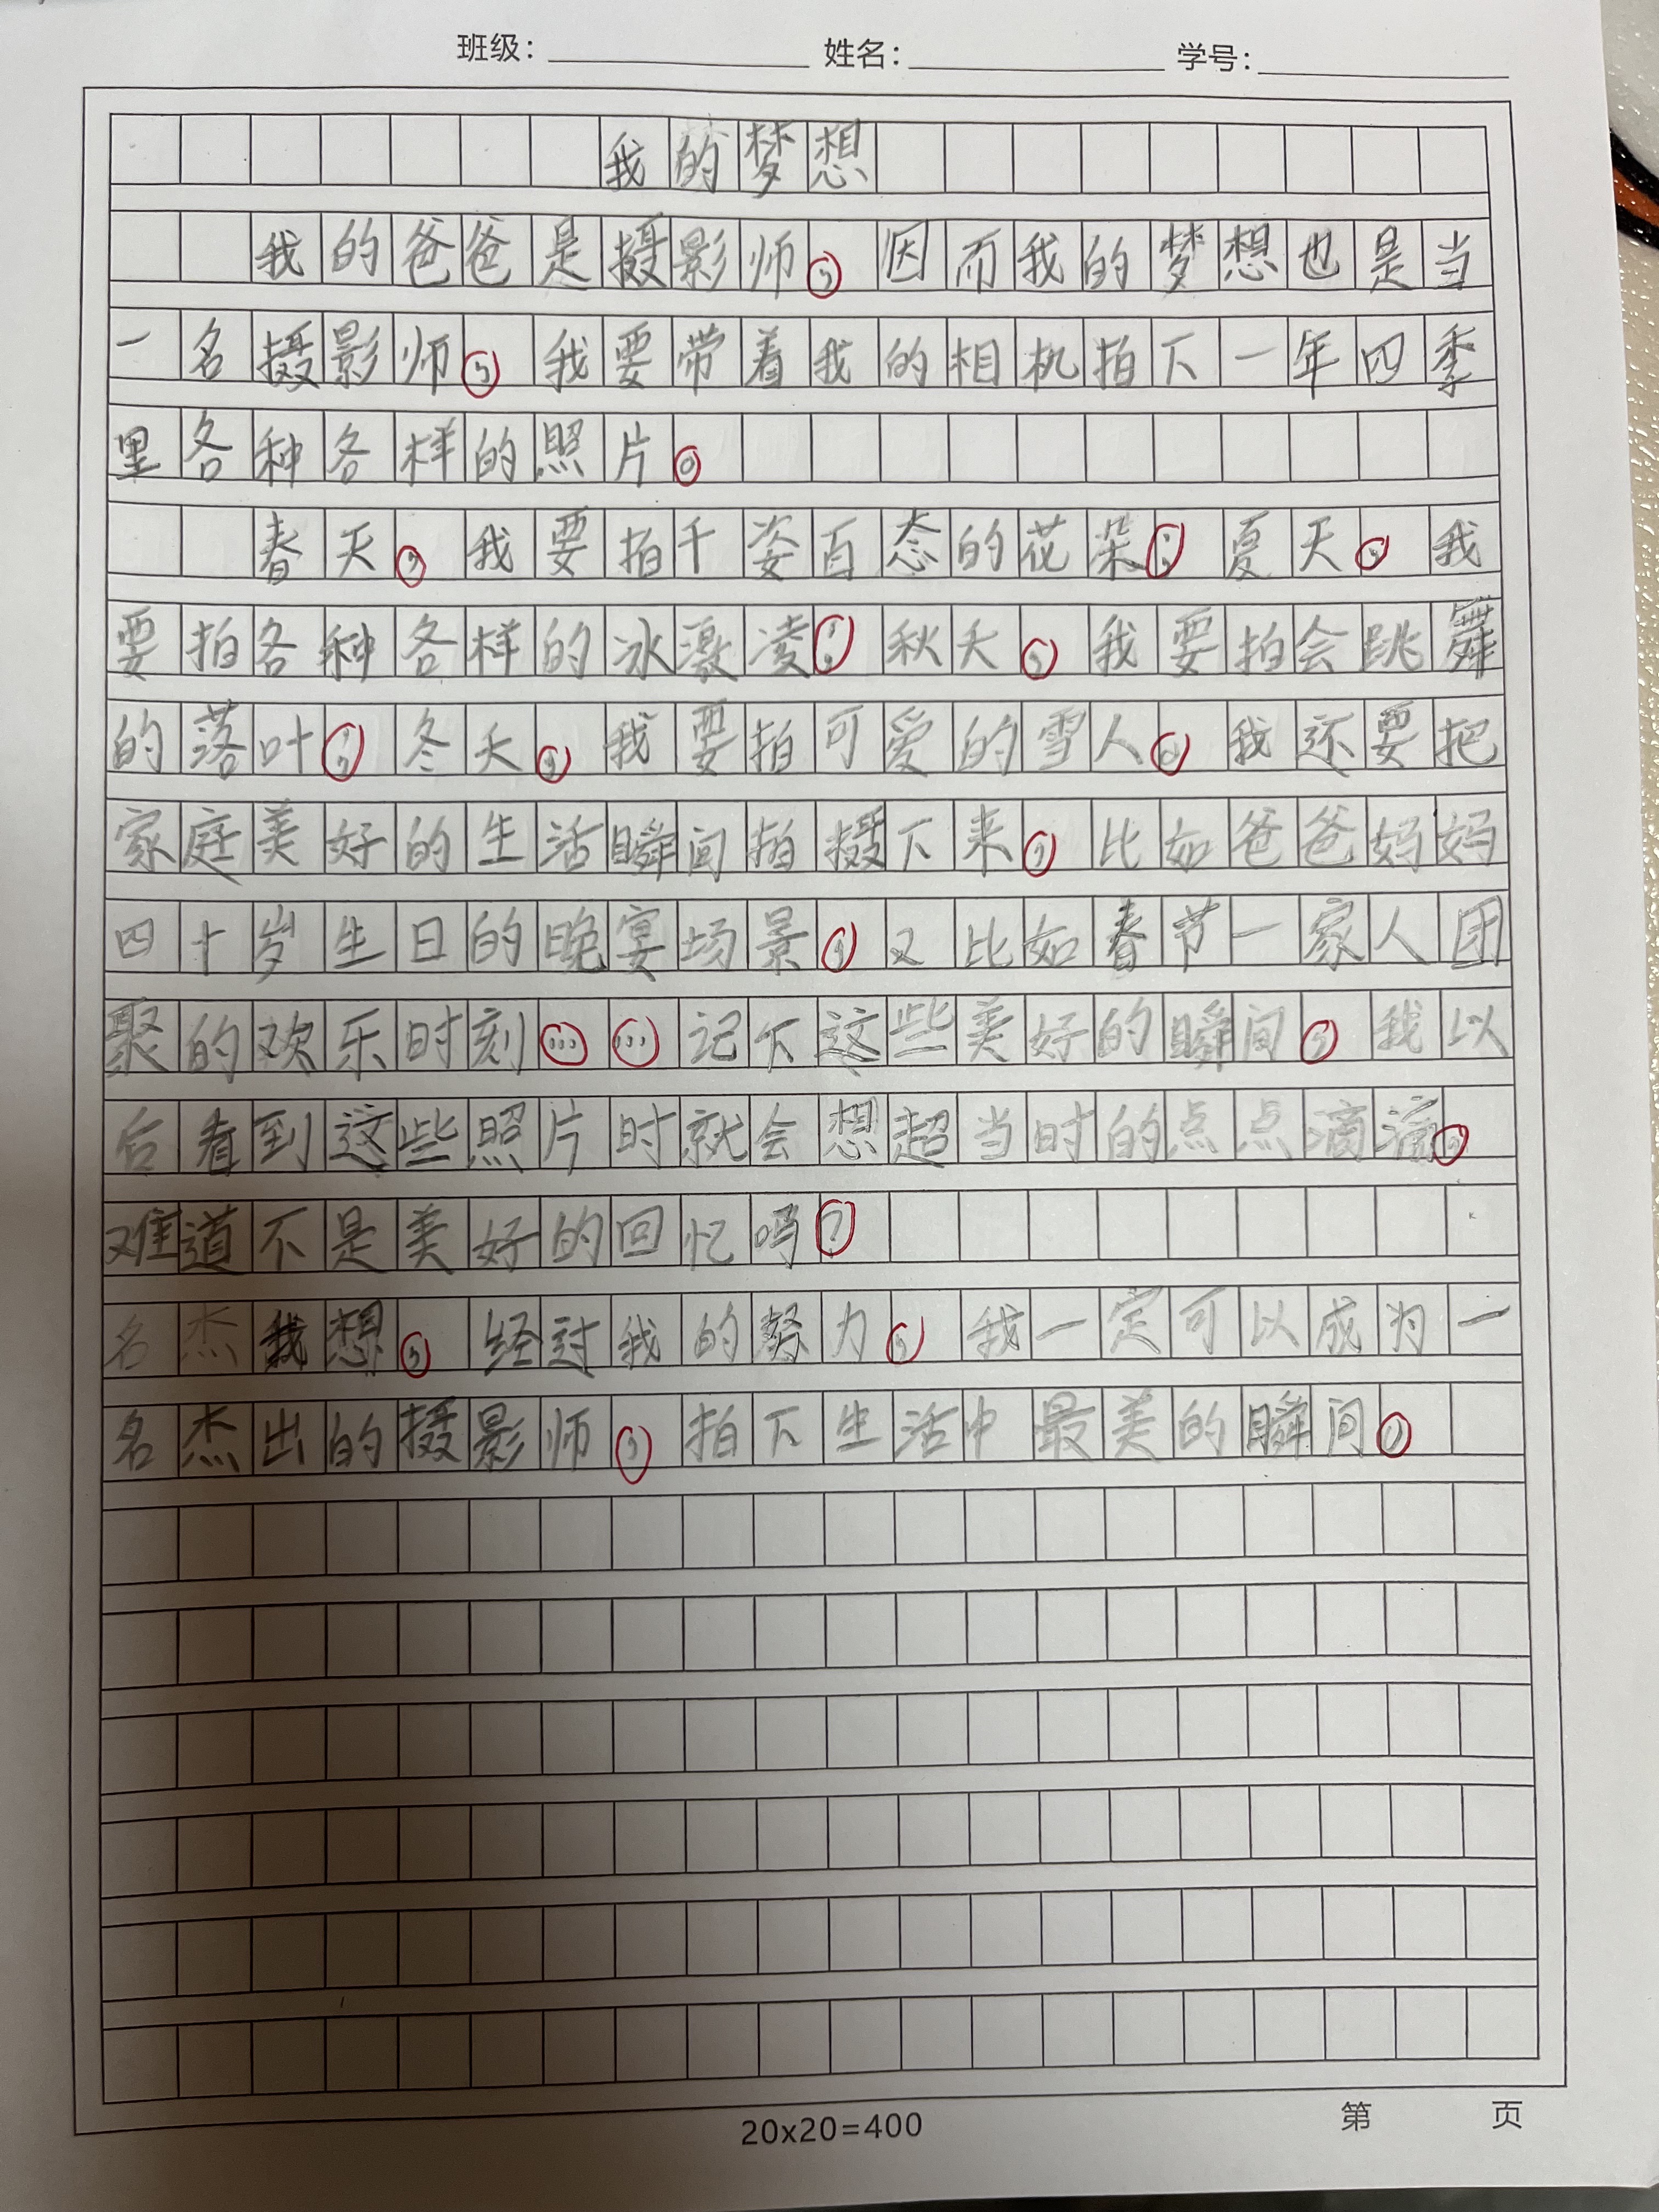 班级： 姓名： 学号：
我的梦想
我的爸爸是摄影师，因而我的梦想也是当
一名摄影师，我要带着我的相机拍下一年四季
里各种各样的照片。
春天，我要拍千姿百态的花朵；夏天，我
要拍各种各样的冰激凌；秋天，我要拍会跳舞
的落叶；冬天，我要拍可爱的雪人。我还要把
家庭美好的生活瞬间拍摄下来，比如爸爸妈妈
四十岁生日的晚宴场景，又比如春节一家人团
聚的欢乐时刻……记下这些美好的瞬间，我以
后看到这些照片时就会想超当时的点点滴滴，
难道不是美好的回忆吗？
名杰我想，经过我的努力，我一定可以成为一
名杰出的摄影师，拍下生活中最美的瞬间。
20x20=400
第 页